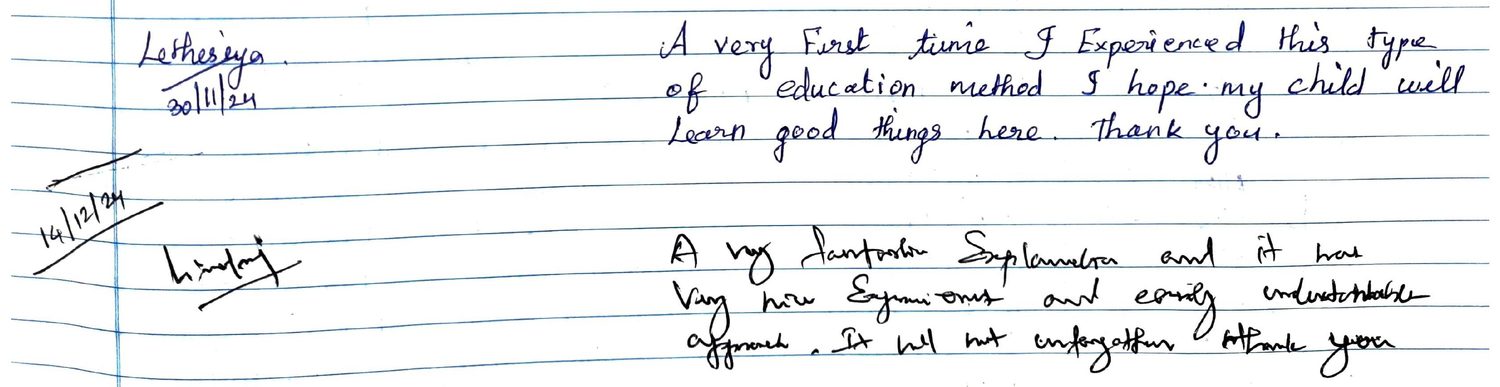 Lethesiya.
30/11/24
A very First time I Experienced this type
of education method I hope. my child will
Learn good things here. Thank you.
14/12/24
A very fantastic Explanation and it has
Very nice Experiences and easily understandable
approach. It will not unforgotten thank you